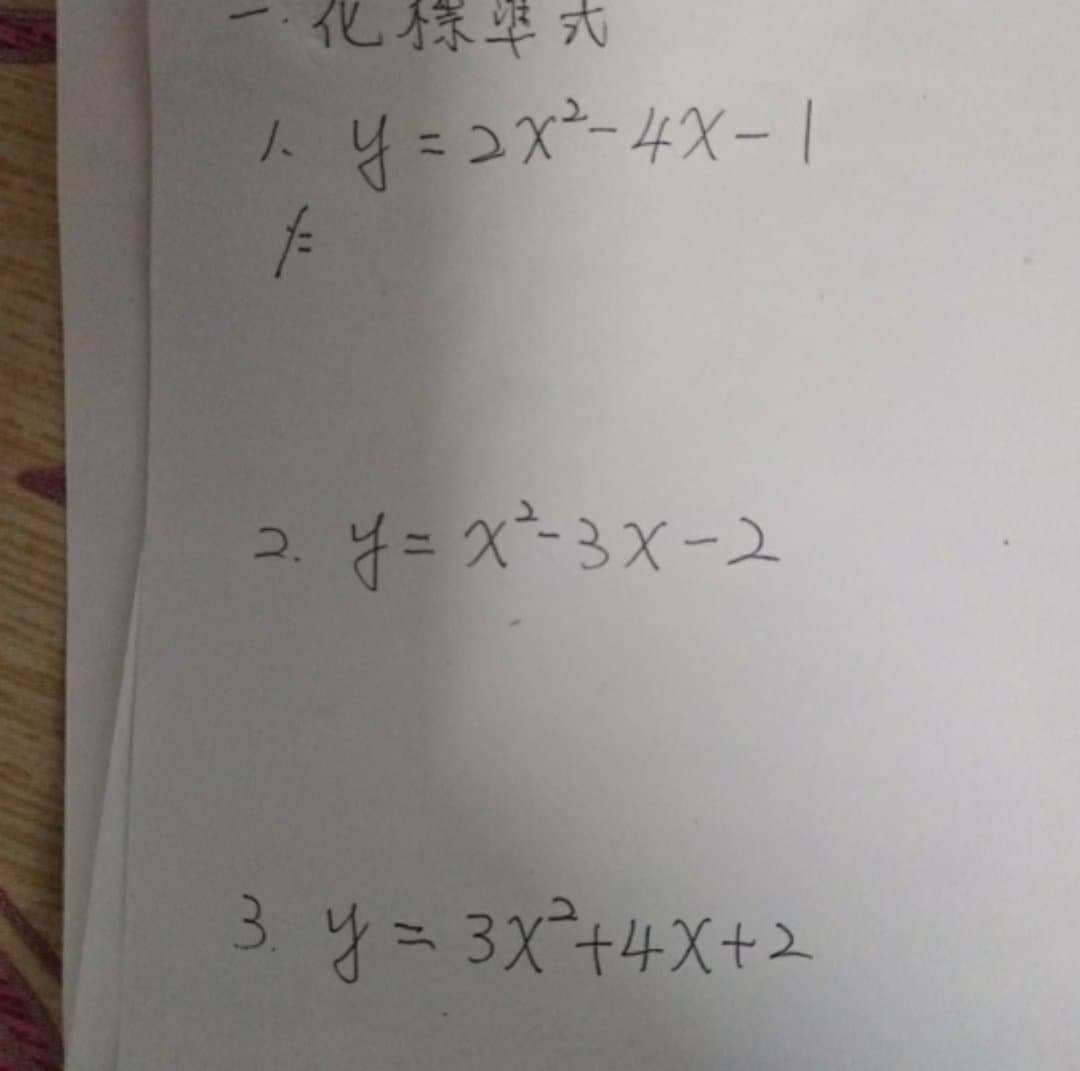 一. 化標準式
1. y = 2x²-4x-1
2. y = x²-3x-2
3. y = 3x²+4x+2